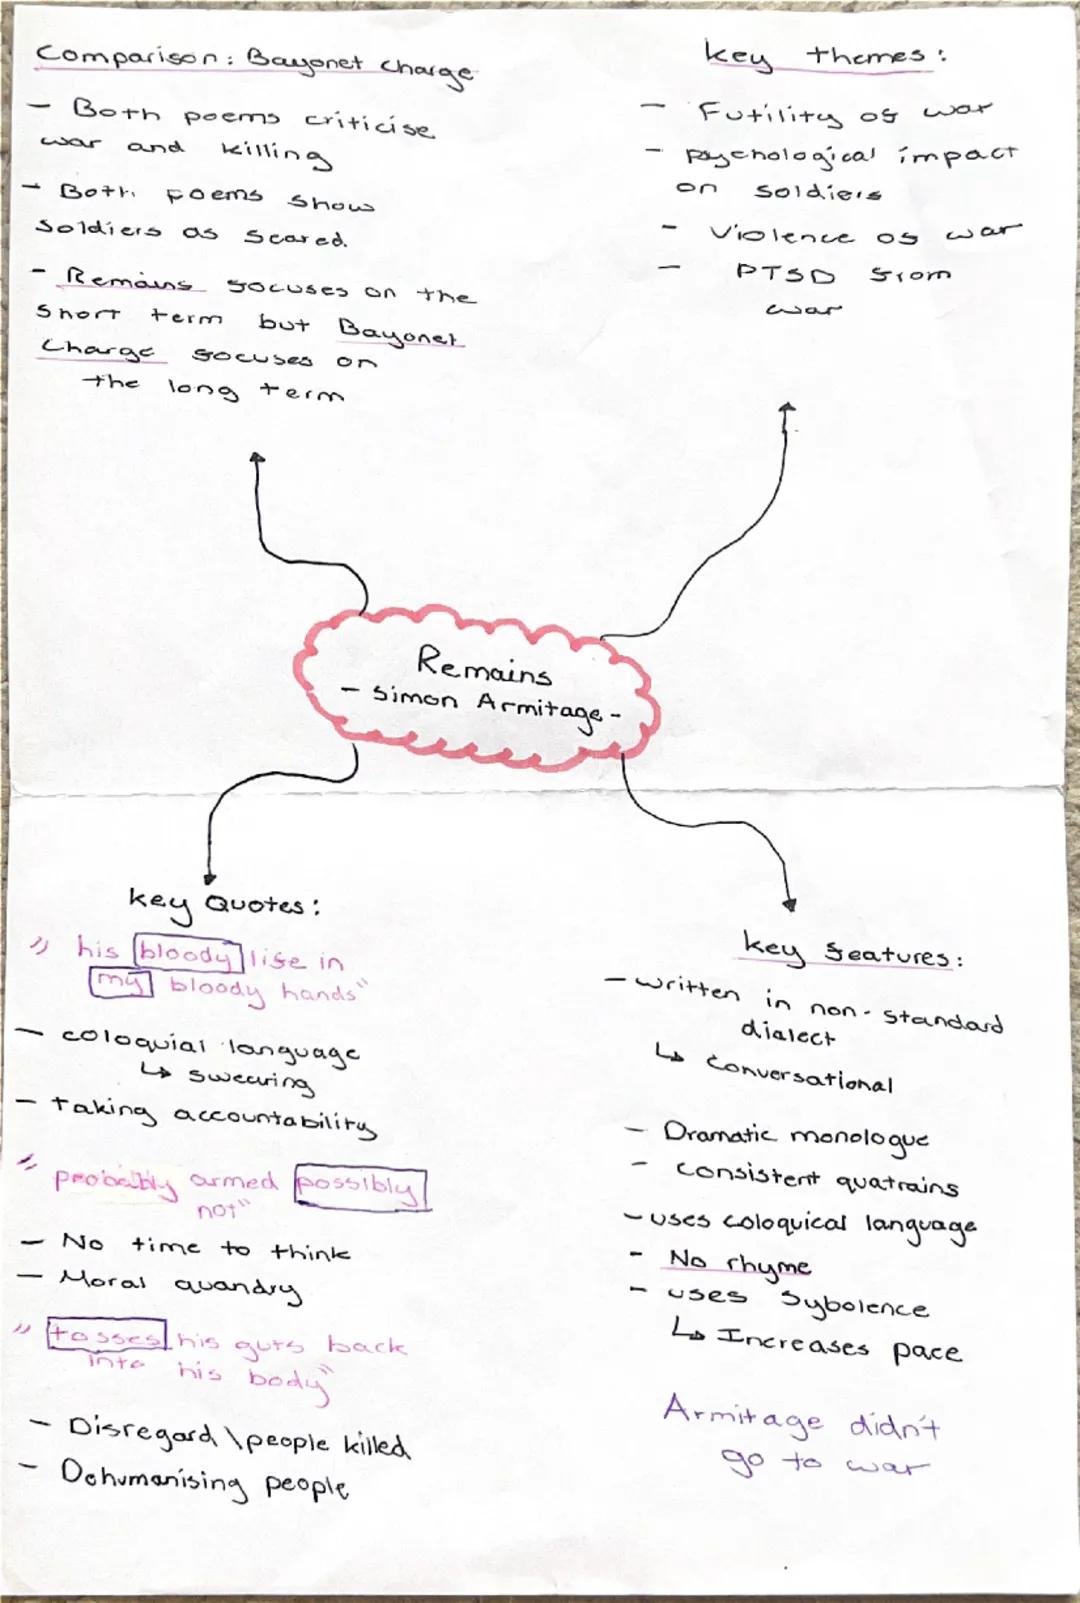 Comparison: Bayonet charge
- Both poems criticise
war and killing
- Both poems show
soldiers as scared.
- Remains focuses on the
short term but Bayonet
Charge focuses on
the long term
key themes:
- Futility of war
- psychological impact
on soldiers
- Violence of war
- PTSD from
war
Remains
- Simon Armitage -
key Quotes:
" his bloody life in
my bloody hands"
- coloquial language
↳ swearing
- taking accountability
" probably armed possibly
not"
- No time to think
- Moral quandry
" tosses his guts back
into his body"
- Disregard \ people killed
- Dehumanising people
key features:
- written in non-standard
dialect
↳ conversational
- Dramatic monologue
- consistent quatrains
- uses coloquical language
- No rhyme
- uses Sybolence
↳ Increases pace
Armitage didn't
go to war